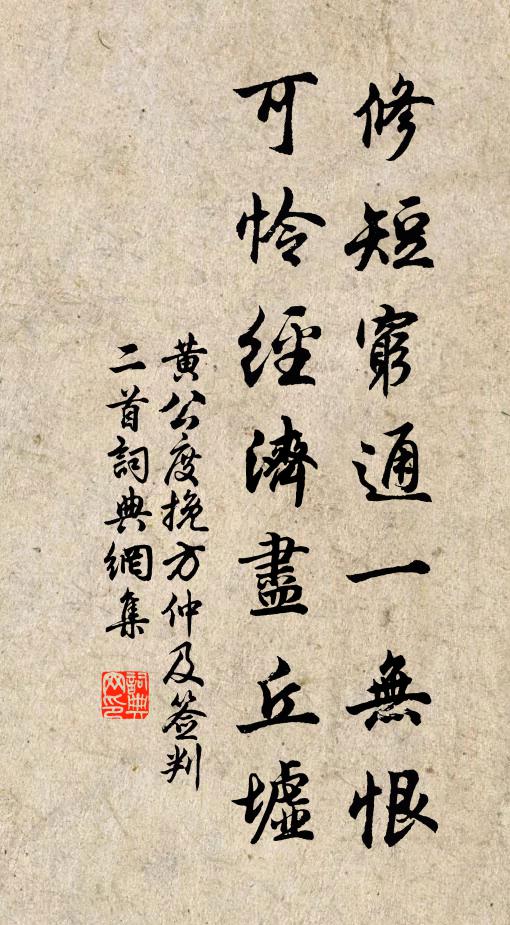 修短窮通一無恨
可怜經濟盡丘墟
黄公度挽方仲及签判
二首詞典網集
詞典网印